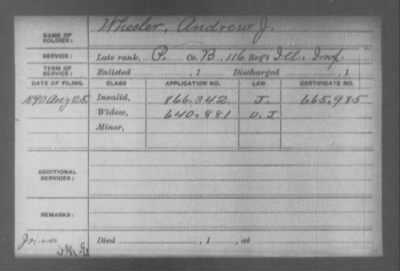 NAME OF SOLDIER: Wheeler, Andrew J.
SERVICE: Late rank, P. Co. B, 116 Reg't Ill. Inf.
TERM OF SERVICE: Enlisted , 1 Discharged , 1
DATE OF FILING. CLASS APPLICATION NO. LAW. CERTIFICATE NO.
1890 Aug 25 Invalid, 866,342. J. 665,985
Widow, 640,881 O.J
Minor,
ADDITIONAL SERVICES:
REMARKS:
Died , 1 , at